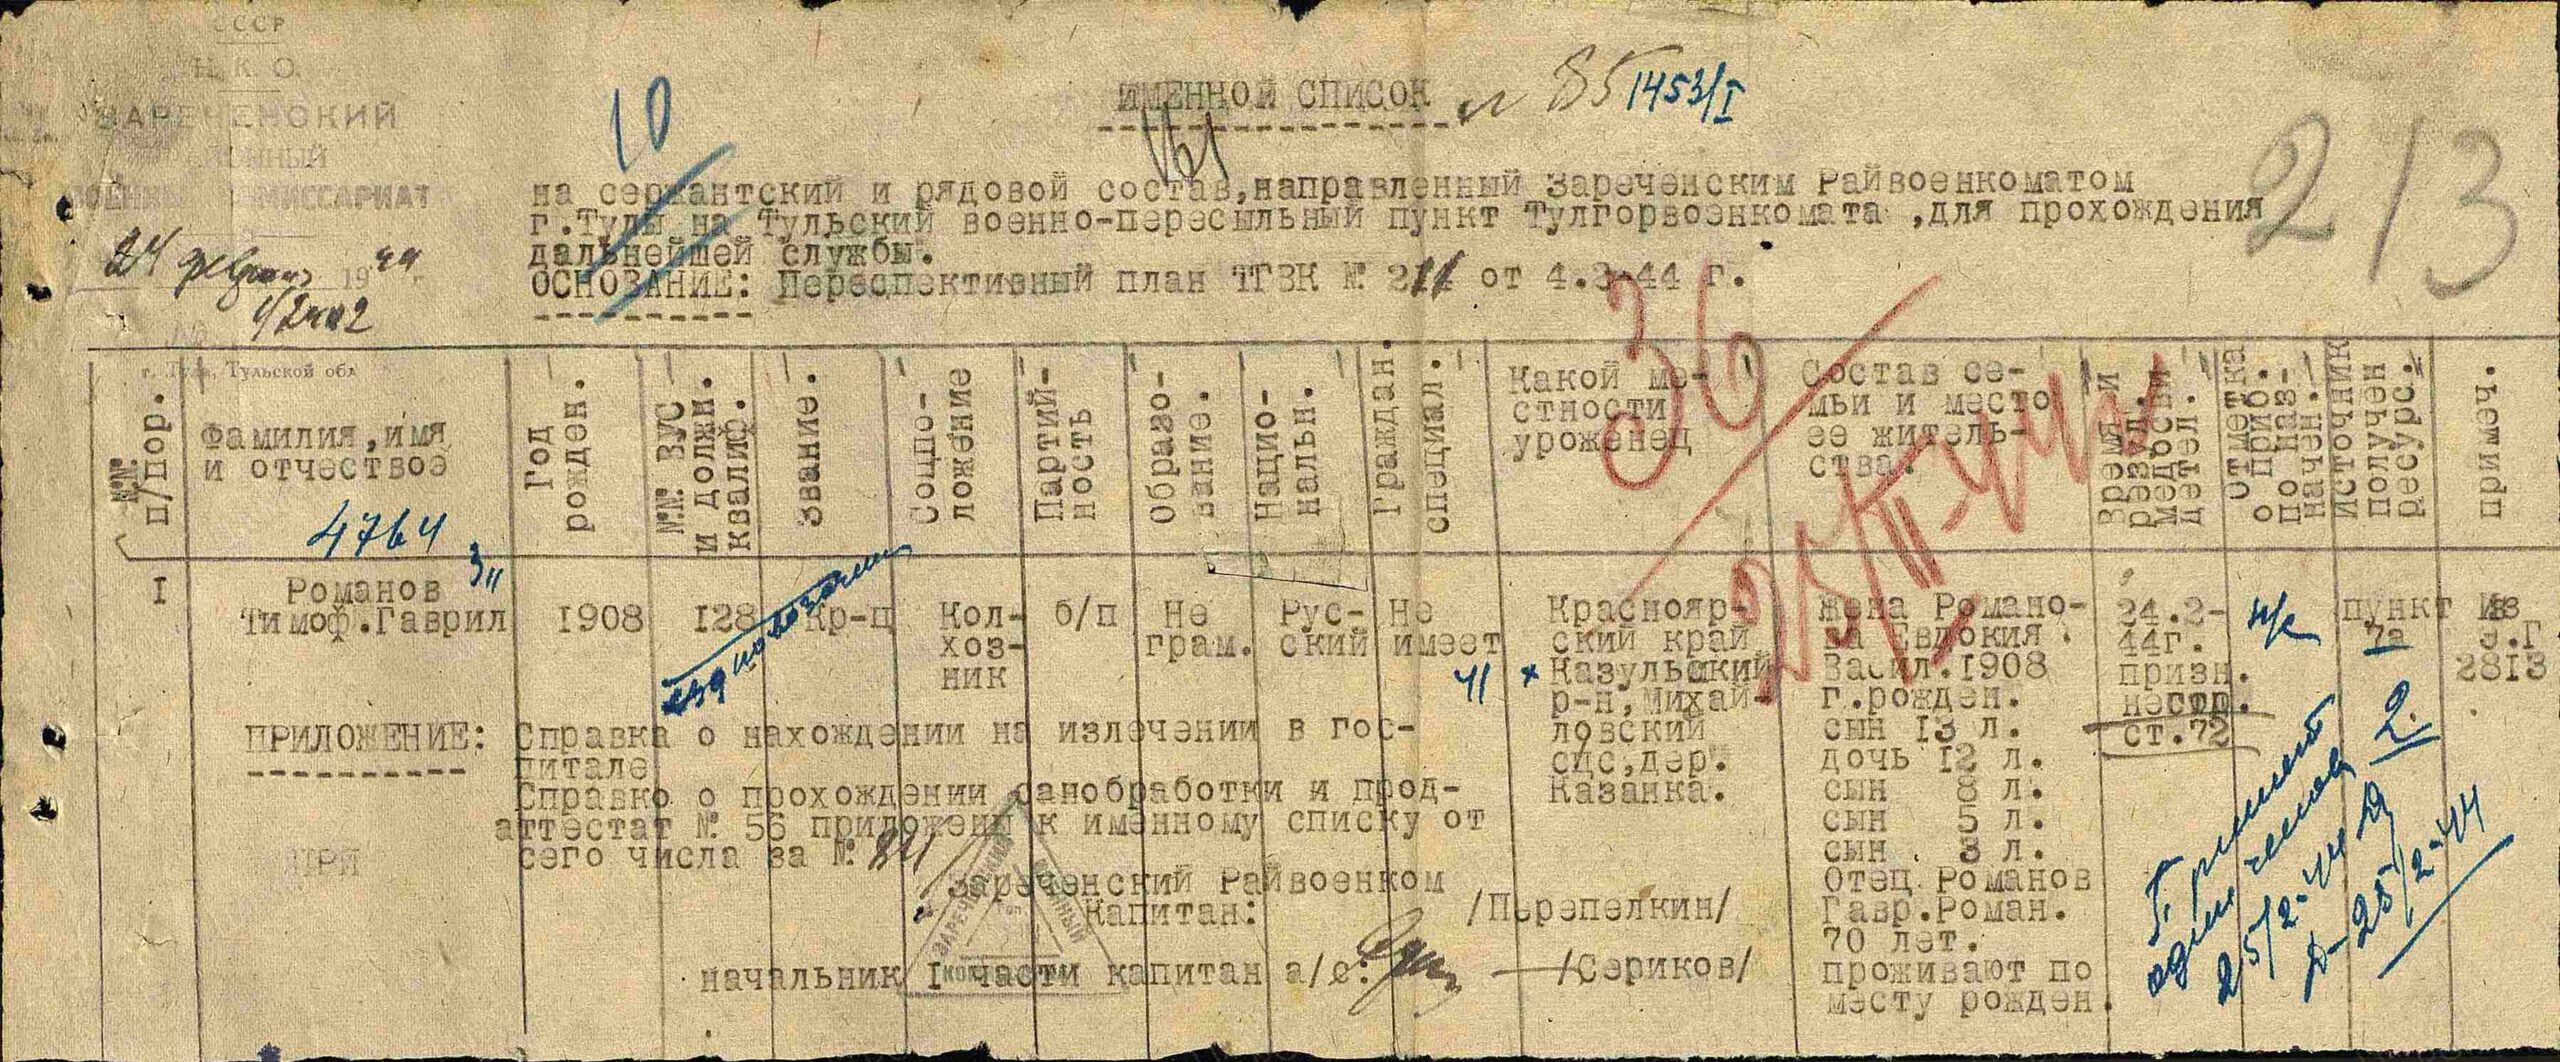 СССР
Н. К. О.
ЗАРЕЧЕНСКИЙ
РАЙОННЫЙ
ВОЕННЫЙ КОМИССАРИАТ
24 февраля 1944 г.
г. Тула, Тульской обл
ИМЕННОЙ СПИСОК
85 1453/I
10
161
213
на сержантский и рядовой состав,направленный Зареченским Райвоенкоматом
г.Тулы на Тульский военно-пересыльный пункт Тулгорвоенкомата ,для прохождения
дальнейшей службы.
ОСНОВАНИЕ: Переспективный план ТГВК № от 4.2-44 г.
36
25/II-44
№№ п/пор.
Фамилия,имя
и отчествое
4764
Год рожден.
№№ ВУС и должн. квалиф.
Звание.
Соцпо-
ложение
Партий-
ность
Образо-
вание.
Нацио-
нальн.
Граждан.
специал.
Какой ме-
стности
уроженец
Состав се-
мьи и место
ее житель-
ства.
Время и
резул.
медосви
детел.
Отметка
о приб.
по наз-
начен.
Источник
получен
ресурс.
примеч.
I
Романов
Тимоф.Гаврил
1908
128
Кр-ц
Кол-
хоз-
ник
б/п
Не
грам.
Рус-
ский
Не
имеет
Краснояр-
ский край
Казульский
р-н,Михай-
ловский
с/с,дер.
Казанка.
жена Романо-
ва Евдокия
Васил.1908
г.рожден.
сын 13 л.
дочь 12 л.
сын 8 л.
сын 5 л.
сын 3 л.
Отец Романов
Гавр.Роман.
70 лет.
проживают по
месту рожден.
24.2-
44г.
призн.
нестр.
ст.72
пункт
7а
Из
э.Г
2813
ПРИЛОЖЕНИЕ:
Справка о нахождении на излечении в гос-
питале
Справко о прохождении санобработки и прод-
аттестат № 56 приложены к именному списку от
сего числа за №
ПРИ
Зареченский Райвоенком
Капитан: /Перепелкин/
начальник I части капитан а/с: /Сериков/
2.
25/2-44
25/2-44